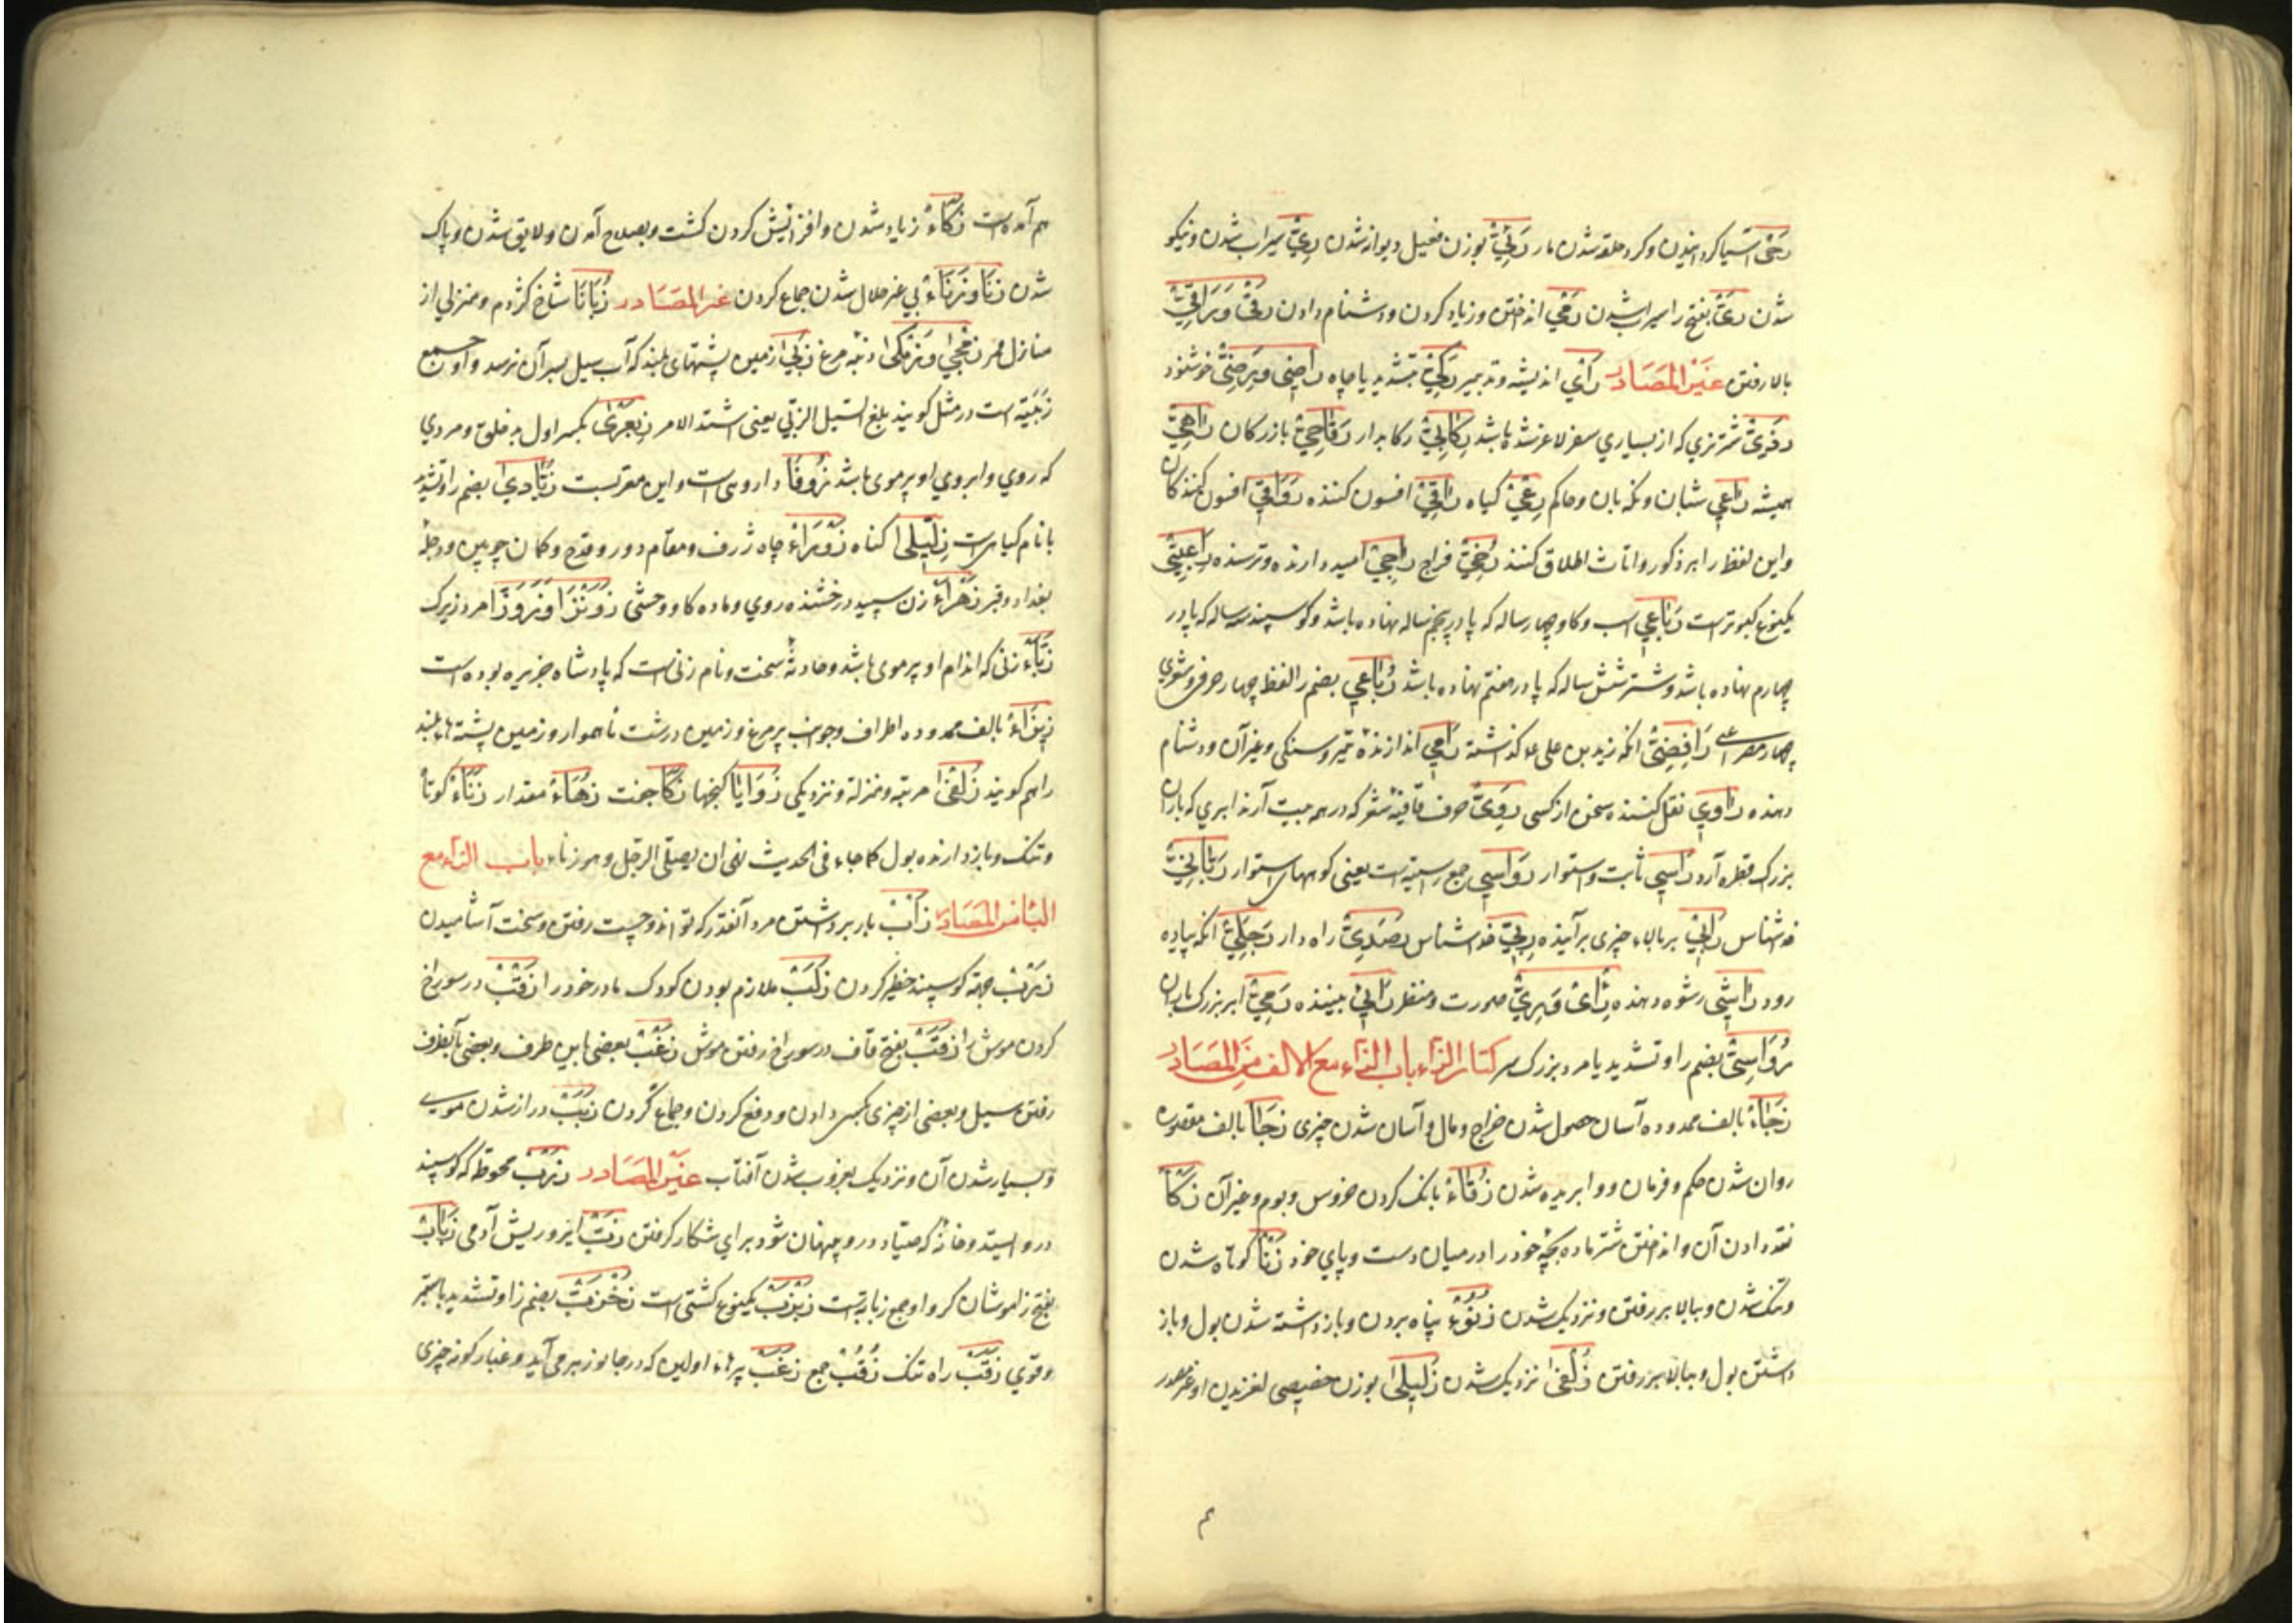 رحی آسیا کردانیدن و کرد حلقه شدن مار رئیّ بوزن فعیل دیوانه شدن ریّ سیراب شدن و نیکو
شدن ریّ بفتح را سیراب شدن رمی انداختن و زیاد کردن و دشنام دادن رقیّ و
بالا رفتن غیر المصادر رای اندیشه و تدبیر رکیّ بتشدید یا چاه راضی و رضیّ خوشنود
شتر نری که از بسیاری سفر لاغر شده باشد رکابیّ رکابدار رقاحیّ بازرکان راهی
همیشه راعی شبان و نکهبان و حاکم رعی کیاه راقی افسون کننده رواقی افسون کنندکان
و این لفظ را بر ذکور و اناث اطلاق کنند رخیّ فراخ راجی امید دارنده و ترسنده راعبیّ
یکنوع کبوترست رباعی اسب و کاو چهار ساله که پا در پنجم ساله نهاده باشد و کوسپند سه ساله که پا در
چهارم نهاده باشد و شتر شش ساله که پا در هفتم نهاده باشد رباعی بضم را لفظ چهار حرفی و شعری
چهار مصراعی رافضیّ انکه زید بن علی ع کذاشته رامی اندازندهٔ تیر و سنکی و غیر آن و دشنام
دهنده راوی نقل کننده سخن از کسی رویّ حرف قافیهٔ شعر که در همه بیت آرند ابری که باران
بزرک قطره آرد راسی ثابت و استوار رواسی جمع راسیه است یعنی کوههای استوار ربّانیّ
خداشناس رابی بر بالاء چیزی برآینده ربیّ خداشناس رصدیّ راه دار رجلیّ انکه پیاده
رود راشی رشوه دهنده رأی و رییّ صورت و منظر رائی بیننده رمیّ ابر بزرک باران
رواسیّ بضم را و تشدید یا مرد بزرک سر کتاب الزاء باب الزاء مع الالف من المصادر
زجاء بالف ممدوده آسان حصول شدن خراج و مال و آسان شدن چیزی زجا بالف مقصوره
روان شدن حکم و فرمان و وابریده شدن زقاء بانک کردن خروس و بوم و غیر آن زکا
نقد دادن آن و انداختن شتر ماده بچّهٔ خود را در میان دست و پای خود زنا کوتاه شدن
و تنک شدن و ببالا بر رفتن و نزدیک شدن زنوء پناه بردن و باز داشته شدن بول و باز
داشتن بول و ببالا بر رفتن زلفی نزدیک شدن زلیلی بوزن خصیصی لغزیدن و غیر مصدر
هم آمده است زکاء زیاد شدن و افزایش کردن کشت و بصلاح آمدن و لایق شدن و پاک
شدن زنا و زناء بی غیر حلال شدن جماع کردن غیر المصادر زبانا شاخ کژدم و منزلی از
منازل قمر زمجی و زمکی دنبه مرغ زبی از زمین پشتهای بلند که آب سیل بسر آن نرسد و او جمع
زبیه است در مثل کویند بلغ السیل الزبی یعنی اشتد الامر زبعری بکسر اول بدخلق و مردی
که روی و ابروی او پرموی باشد زوفا داروی است و این معربست زبّادی بضم را و تشدید
با نام کیاهی است زلّیلی کناه زوراء چاه ژرف و مقام دور و قدح و کمان چوبین و دجلهٔ
بغداد و قبر زهراء زن سپید درخشنده روی و ماده کاو وحشی زونزا و زوزا مرد زیرک
زبّاء زنی که اندام او پرموی باشد و حادثهٔ سخت و نام زنی است که پادشاه جزیره بوده است
زیزاء بالف ممدوده اطراف و جوانب پر مرغ و زمین درشت ناهموار و زمین پشتهٔ بلند
را هم کویند زلفی مرتبه و منزله و نزدیکی زوایا کنجها زکا جفت زهاء مقدار زناء کوتاه
و تنک و باز دارنده بول کما جاء فی الحدیث نهی ان یصلّی الرجل و هو زناء باب الزاء مع
الباء من المصادر زأب بار برداشتن مرد آنقدر که تواند و چست رفتن و سخت آشامیدن
زرب جهة کوسپند حظیر کردن زکب ملازم بودن کودک مادر خود را زقب در سوراخ
کردن موش را زقب بفتح قاف در سوراخ رفتن موش زعب بعضی باین طرف و بعضی بآنطرف
رفتن سیل و بعضی از چیزی بکسی دادن و دفع کردن و جماع کردن زبب دراز شدن موی
و بسیار شدن آن و نزدیک بغروب شدن آفتاب غیر المصادر زرب محوطه که کوسپند
درو ایستد و خانه که صیّاد درو پنهان شود برای شکار کرفتن زبّ ایر و ریش آدمی زباب
بفتح زا موشان کر و او جمع زبابه است زبزب یکنوع کشتی است زخزبّ بضم زا و تشدید با ستبر
و قوی زقب راه تنک زقب جمع زغب پرهاء اولین که در جانور برمی آید و غبار کونه چیزی